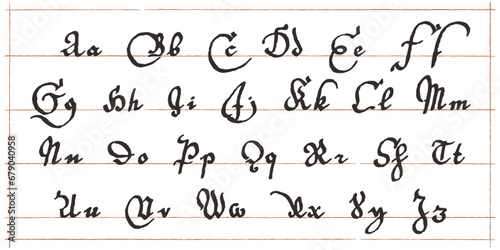 Aa Bb Cc Dd Ee Ff
Gg Hh Ii Jj Kk Ll Mm
Nn Oo Pp Qq Rr Sſ Tt
Uu Vv Ww Xx Yy Zz
Adobe Stock | #679040958